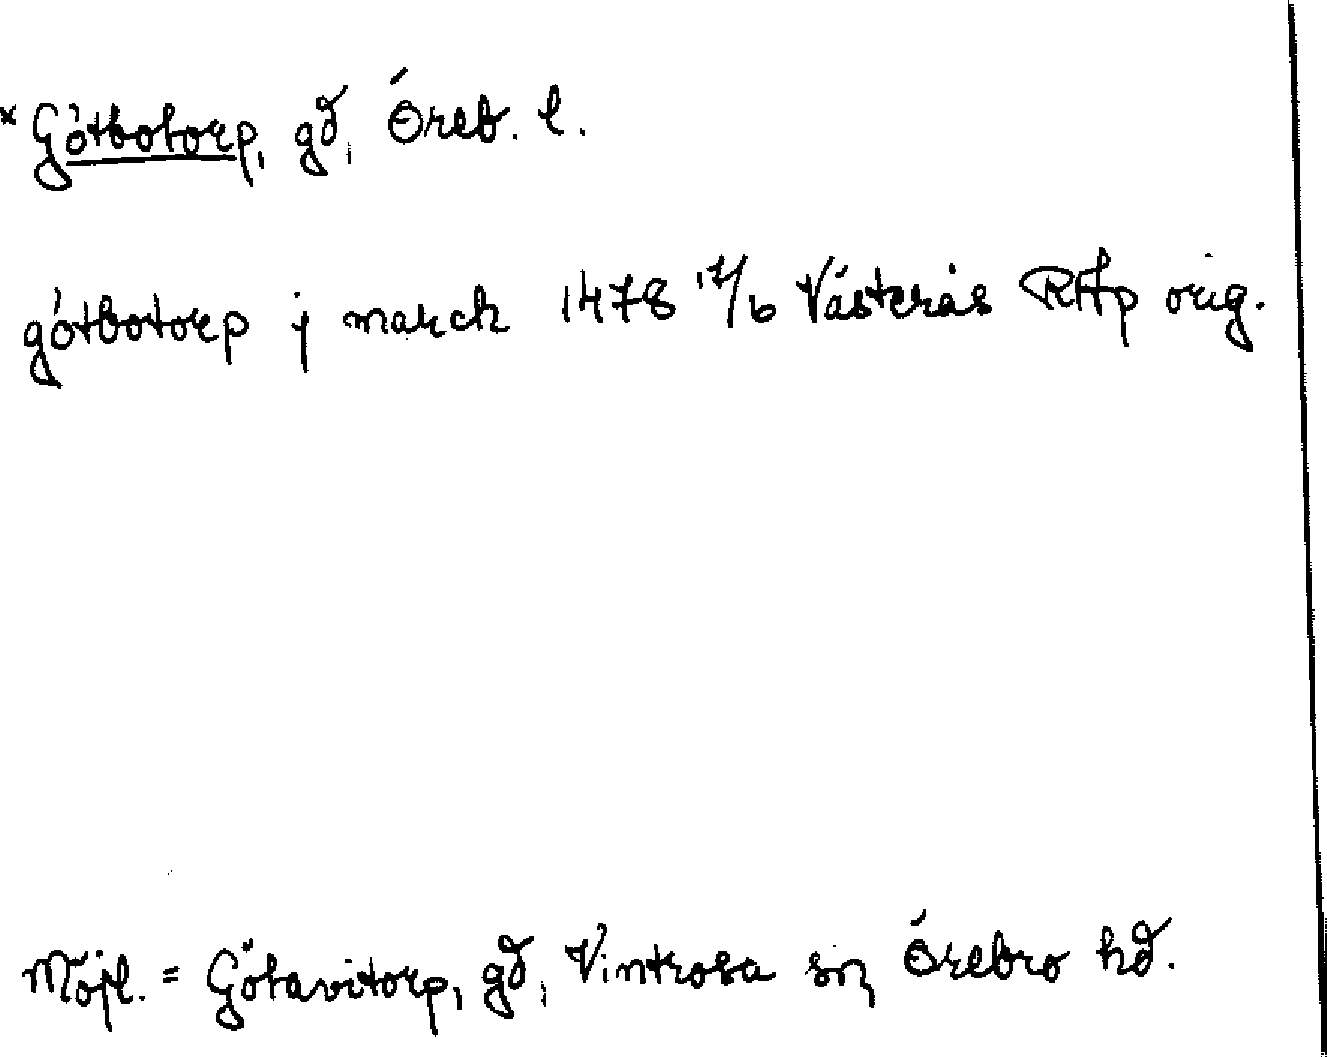 * Götbotorp, gd, Öreb. l.
götbotorp j march 1478 17/6 Västerås RAp orig.
Möjl. = Götavitorp, gd, Vintrosa sn, Örebro hd.